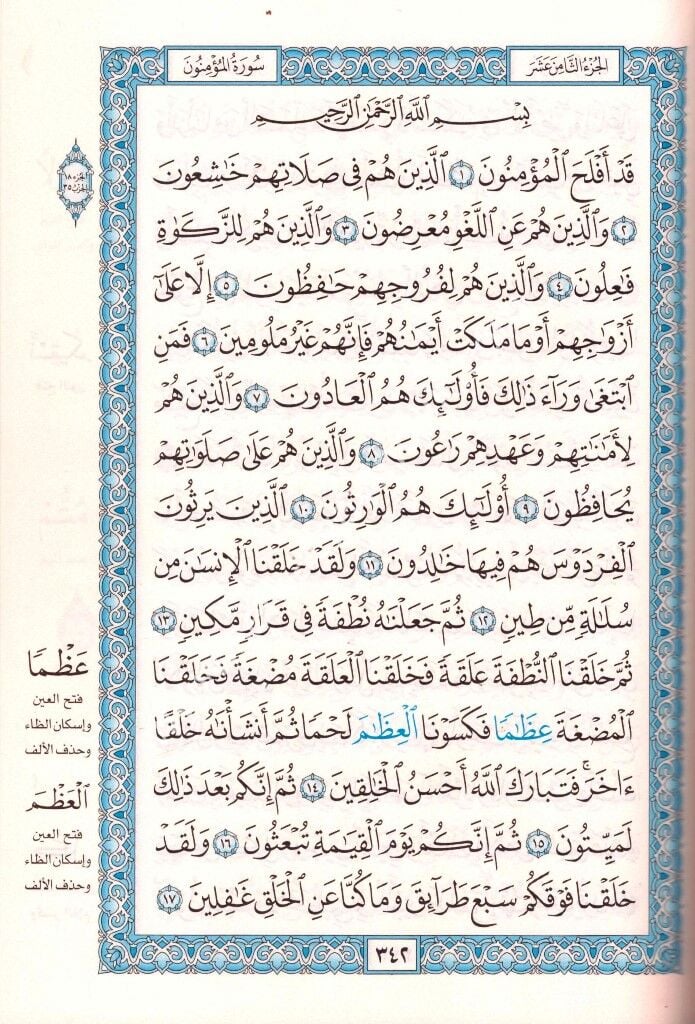 الجزء الثامن عشر
سورة المؤمنون
بِسْمِ ٱللَّهِ ٱلرَّحْمَٰنِ ٱلرَّحِيمِ
قَدْ أَفْلَحَ ٱلْمُؤْمِنُونَ ١ ٱلَّذِينَ هُمْ فِى صَلَاتِهِمْ خَٰشِعُونَ
٢ وَٱلَّذِينَ هُمْ عَنِ ٱللَّغْوِ مُعْرِضُونَ ٣ وَٱلَّذِينَ هُمْ لِلزَّكَوٰةِ
فَٰعِلُونَ ٤ وَٱلَّذِينَ هُمْ لِفُرُوجِهِمْ حَٰفِظُونَ ٥ إِلَّا عَلَىٰٓ
أَزْوَٰجِهِمْ أَوْ مَا مَلَكَتْ أَيْمَٰنُهُمْ فَإِنَّهُمْ غَيْرُ مَلُومِينَ ٦ فَمَنِ
ٱبْتَغَىٰ وَرَآءَ ذَٰلِكَ فَأُو۟لَٰٓئِكَ هُمُ ٱلْعَادُونَ ٧ وَٱلَّذِينَ هُمْ
لِأَمَٰنَٰتِهِمْ وَعَهْدِهِمْ رَٰعُونَ ٨ وَٱلَّذِينَ هُمْ عَلَىٰ صَلَوَٰتِهِمْ
يُحَافِظُونَ ٩ أُو۟لَٰٓئِكَ هُمُ ٱلْوَٰرِثُونَ ١٠ ٱلَّذِينَ يَرِثُونَ
ٱلْفِرْدَوْسَ هُمْ فِيهَا خَٰلِدُونَ ١١ وَلَقَدْ خَلَقْنَا ٱلْإِنسَٰنَ مِن
سُلَٰلَةٍ مِّن طِينٍ ١٢ ثُمَّ جَعَلْنَٰهُ نُطْفَةً فِى قَرَارٍ مَّكِينٍ ١٣
ثُمَّ خَلَقْنَا ٱلنُّطْفَةَ عَلَقَةً فَخَلَقْنَا ٱلْعَلَقَةَ مُضْغَةً فَخَلَقْنَا
ٱلْمُضْغَةَ عِظَٰمًا فَكَسَوْنَا ٱلْعِظَٰمَ لَحْمًا ثُمَّ أَنشَأْنَٰهُ خَلْقًا
ءَاخَرَ ۚ فَتَبَارَكَ ٱللَّهُ أَحْسَنُ ٱلْخَٰلِقِينَ ١٤ ثُمَّ إِنَّكُم بَعْدَ ذَٰلِكَ
لَمَيِّتُونَ ١٥ ثُمَّ إِنَّكُمْ يَوْمَ ٱلْقِيَٰمَةِ تُبْعَثُونَ ١٦ وَلَقَدْ
خَلَقْنَا فَوْقَكُمْ سَبْعَ طَرَآئِقَ وَمَا كُنَّا عَنِ ٱلْخَلْقِ غَٰفِلِينَ ١٧
٣٤٢
الجزء ١٨
الحزب ٣٥
عَظْمًا
فتح العين
وإسكان الظاء
وحذف الألف
ٱلْعَظْمَ
فتح العين
وإسكان الظاء
وحذف الألف